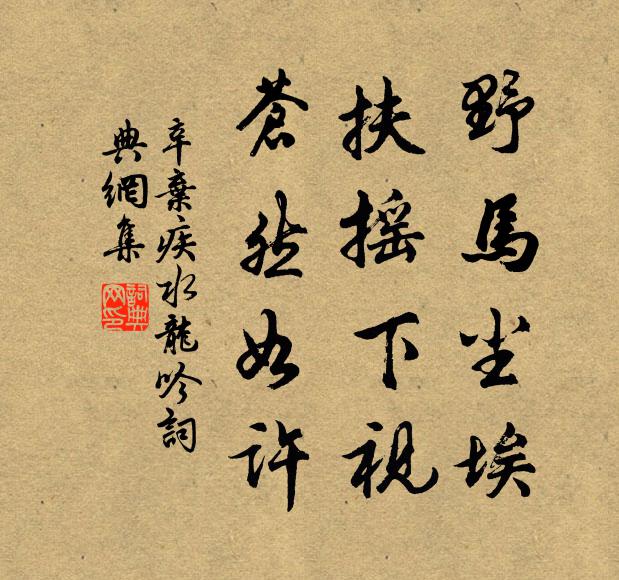 野馬尘埃
扶摇下視
蒼然如許
辛棄疾水龍吟詞
典網集
詞典网印